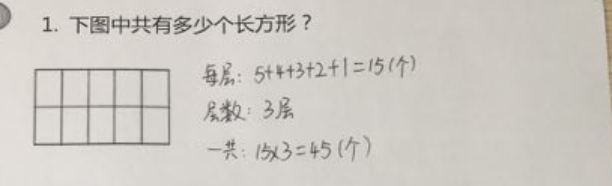 1. 下图中共有多少个长方形？
每层：5+4+3+2+1=15(个)
层数：3层
一共：15x3=45(个)